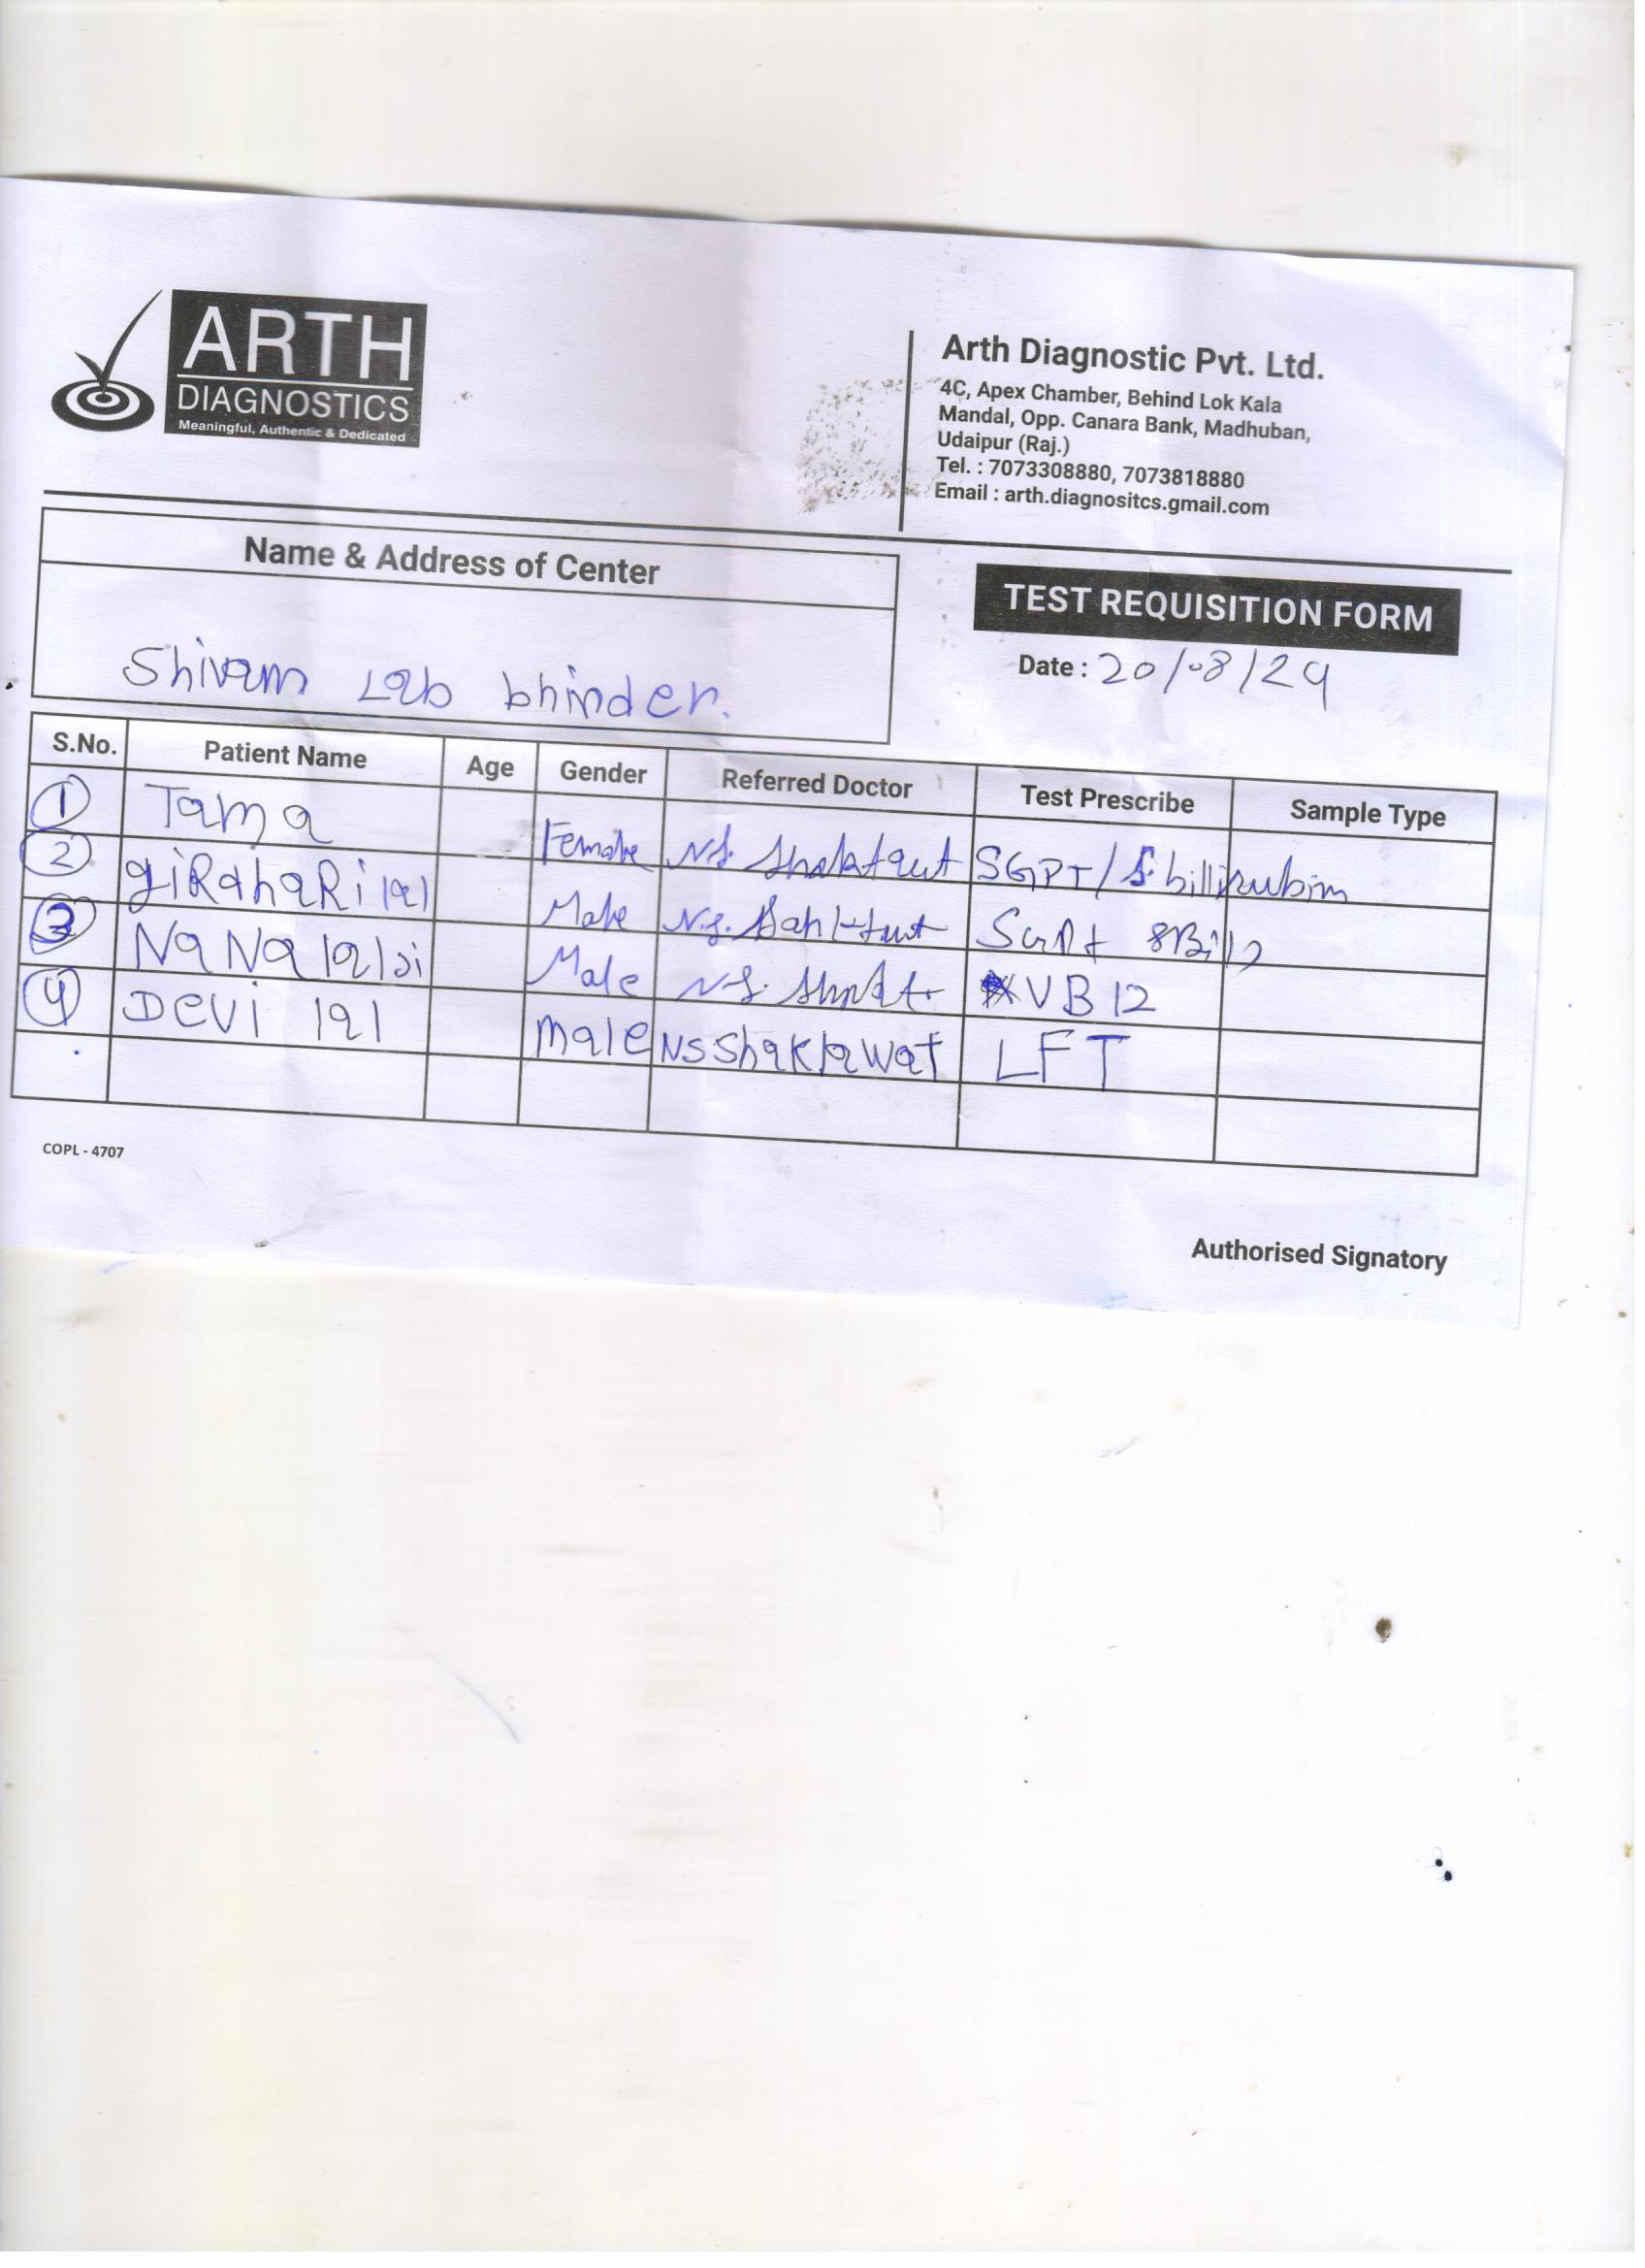 ARTH
DIAGNOSTICS
Meaningful, Authentic & Dedicated
Arth Diagnostic Pvt. Ltd.
4C, Apex Chamber, Behind Lok Kala
Mandal, Opp. Canara Bank, Madhuban,
Udaipur (Raj.)
Tel. : 7073308880, 7073818880
Email : arth.diagnositcs.gmail.com
Name & Address of Center
Shivam Lab bhinder.
TEST REQUISITION FORM
Date : 20/08/24
S.No. Patient Name Age Gender Referred Doctor Test Prescribe Sample Type
1 Tama Female N.S. SGPT/S billirubin
2 giRdhaRi lal Male N.S.
3 NaNa lal Male N.S. VB12
4 DEVi lal male NS Shaktawat LFT
COPL - 4707
Authorised Signatory